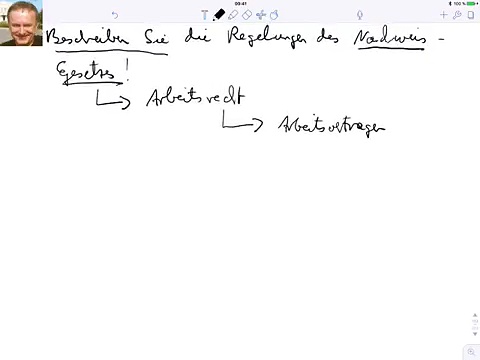 00:41
100 %
Beschreiben Sie die Regelungen des Nachweis-
Gesetzes!
Arbeitsrecht
Arbeitsvertrages